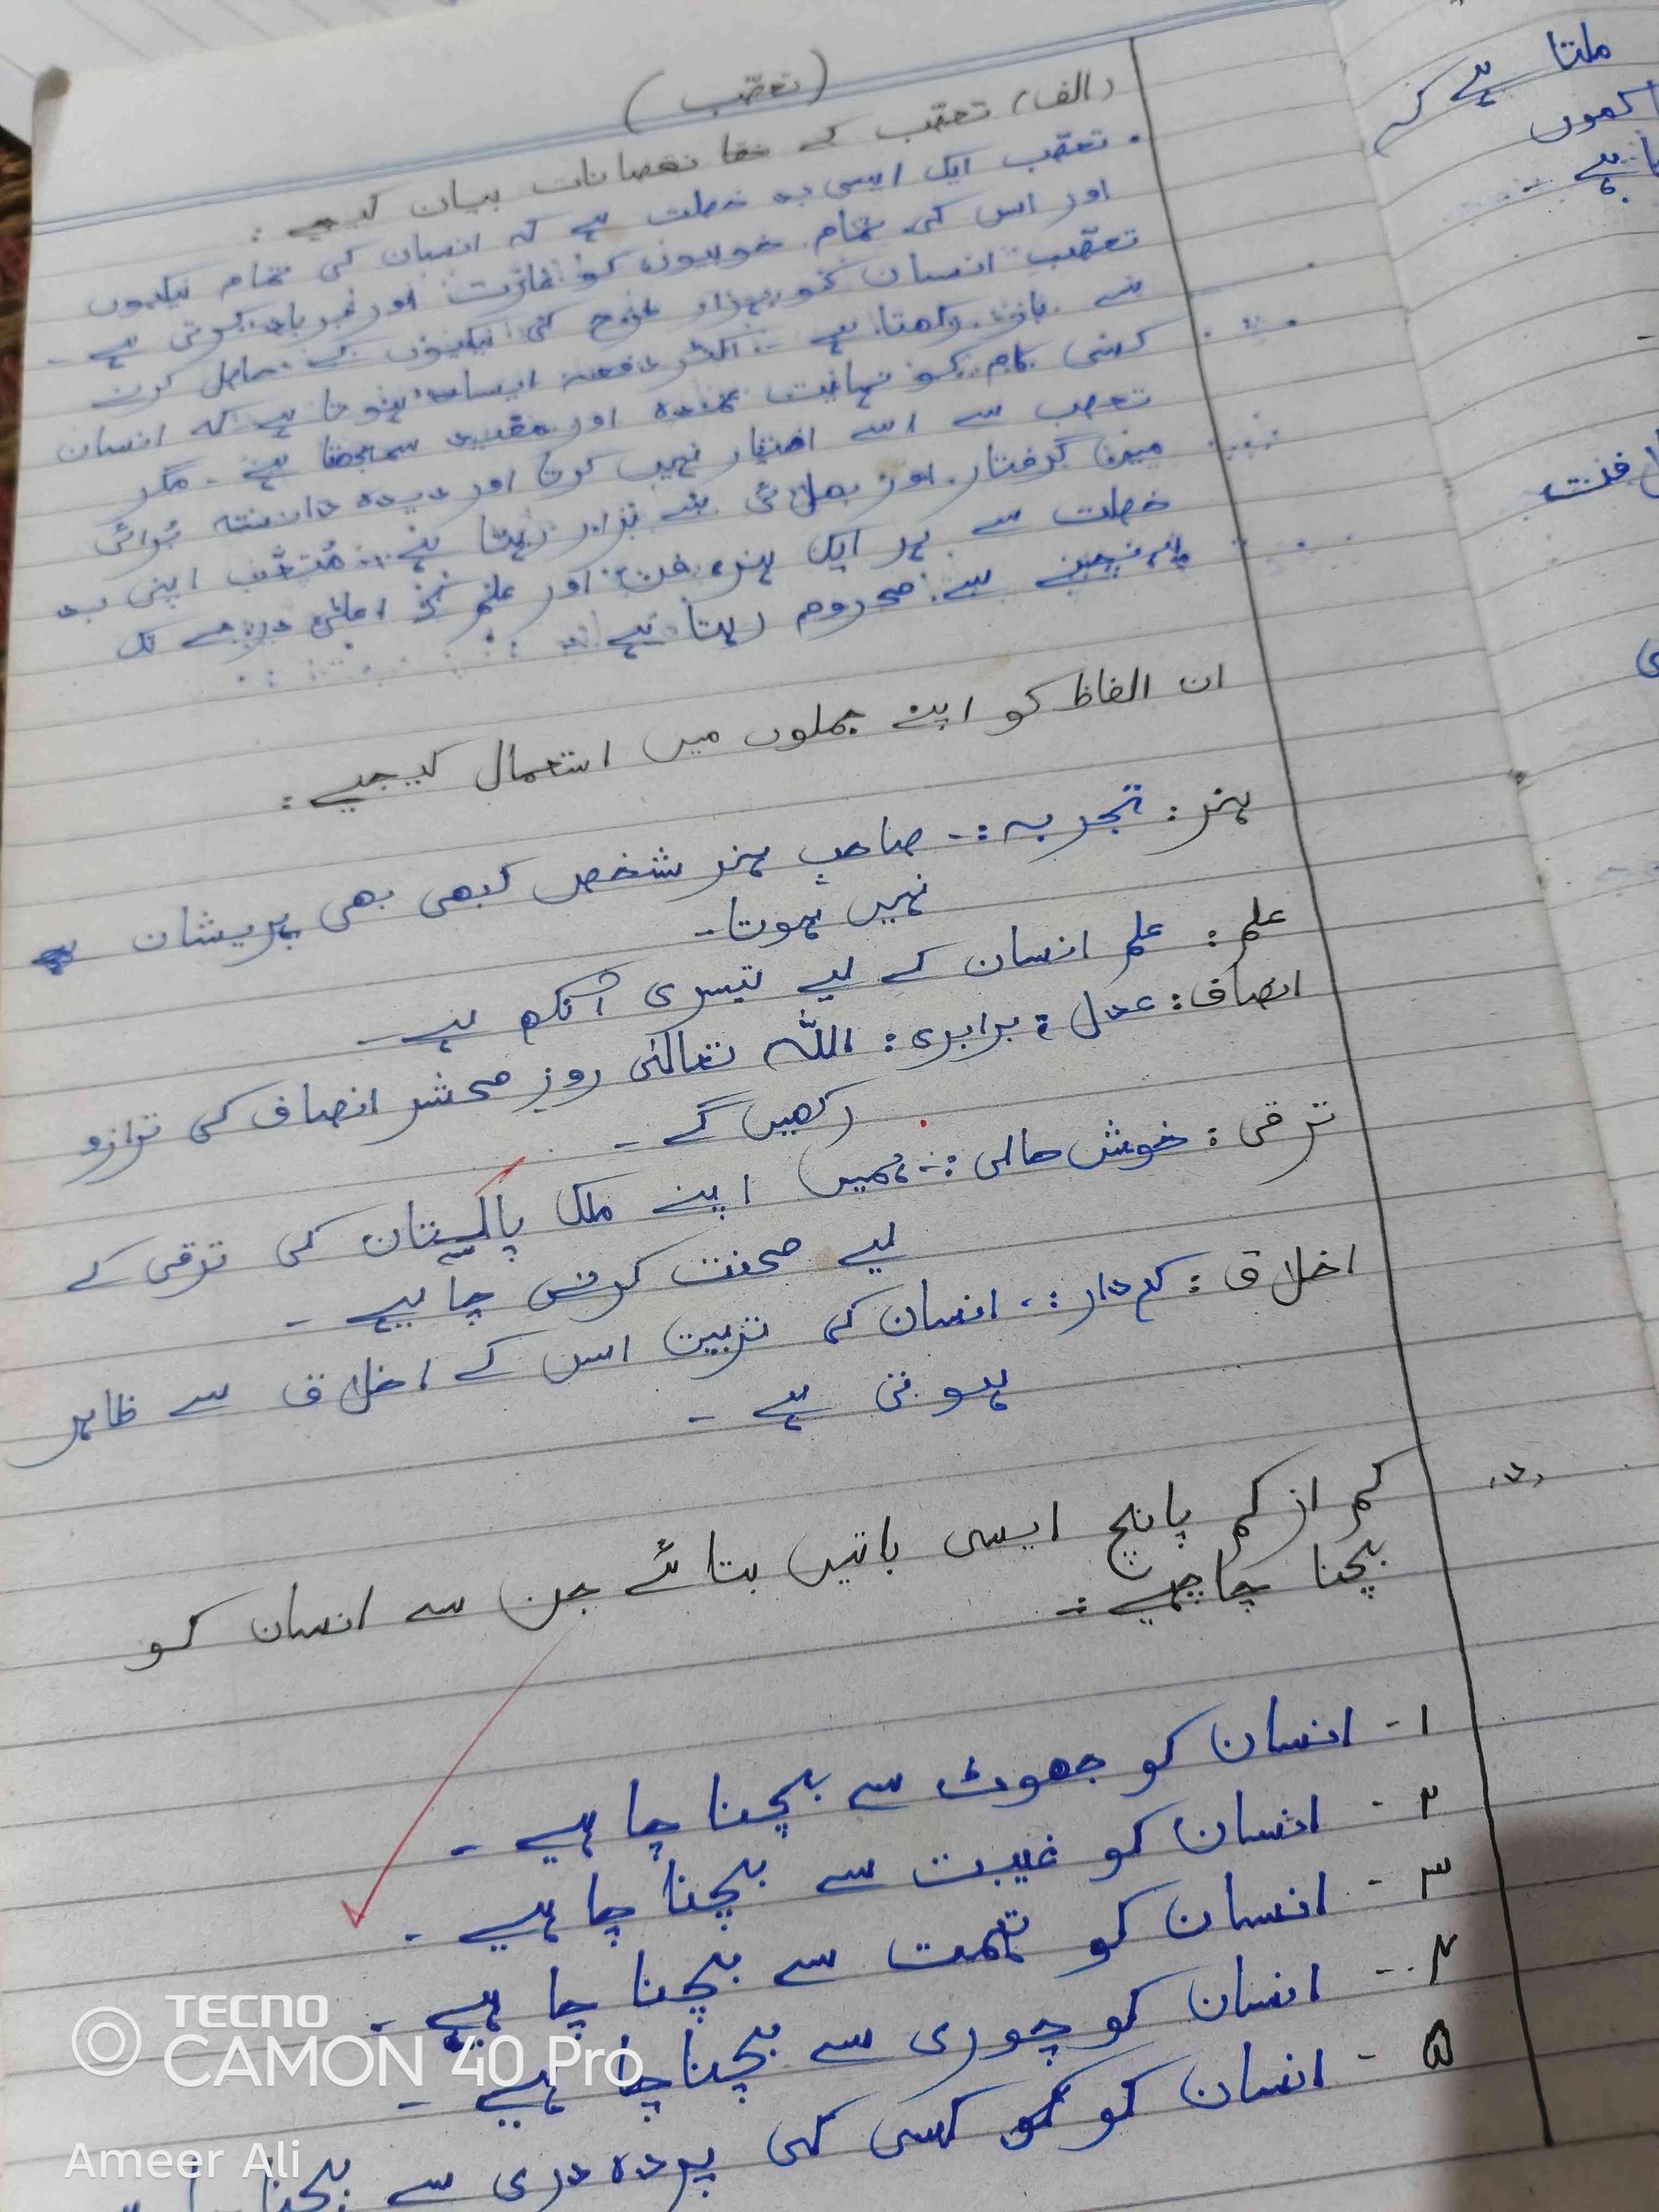 (تعصّب)
(الف) تعصّب کے نقصانات بیان کیجیے:
تعصّب ایک ایسی بد خصلت ہے کہ انسان کی تمام نیکیوں
اور اس کی تمام خوبیوں کو غارت اور برباد کرتی ہے۔
تعصّب انسان کو ہزار طرح کی نیکیوں کے حاصل کرنے
سے باز رکھتا ہے۔ اکثر دفعہ ایسا ہوتا ہے کہ انسان
کسی کام کو نہایت عمدہ اور مفید سمجھتا ہے۔ مگر
تعصب سے اسے اختیار نہیں کرتا اور دیدہ دانستہ بُرائی
میں گرفتار اور بھلائی سے بزار رہتا ہے۔ اپنی بد
خصلت سے ہر ایک ہنر، فن اور علم کے اعلیٰ درجے تک
پہنچنے سے محروم رہتا ہے
ان الفاظ کو اپنے جملوں میں استعمال کیجیے:
ہنر: تجربہ:- صاحبِ ہنر شخص کبھی بھی پریشان
نہیں ہوتا۔
علم: علم انسان کے لیے تیسری آنکھ ہے۔
انصاف: عدل، برابری: اللّٰہ تعالیٰ روزِ محشر انصاف کی ترازو
رکھیں گے۔
ترقی: خوش حالی:- ہمیں اپنے ملک پاکستان کی ترقی کے
لیے محنت کرنی چاہیے۔
اخلاق: کردار:- انسان کی تربیت اس کے اخلاق سے ظاہر
ہوتی ہے۔
(د) کم از کم پانچ ایسی باتیں بتائے جن سے انسان کو
بچنا چاہیے:-
۱- انسان کو جھوٹ سے بچنا چاہیے۔
۲- انسان کو غیبت سے بچنا چاہیے۔
۳- انسان کو تہمت سے بچنا چاہیے۔
۴- انسان کو چوری سے بچنا چاہیے۔
۵- انسان کو کسی کی پردہ دری سے بچنا
ملتا ہے کہ
ہے۔
TECNO
CAMON 40 Pro
Ameer Ali